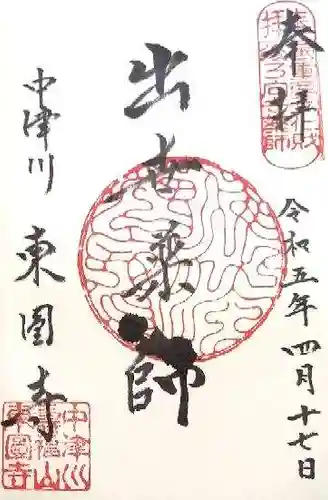 奉拝
令和五年四月十七日
出世薬師
中津川 東圓寺
中津川
東圓寺